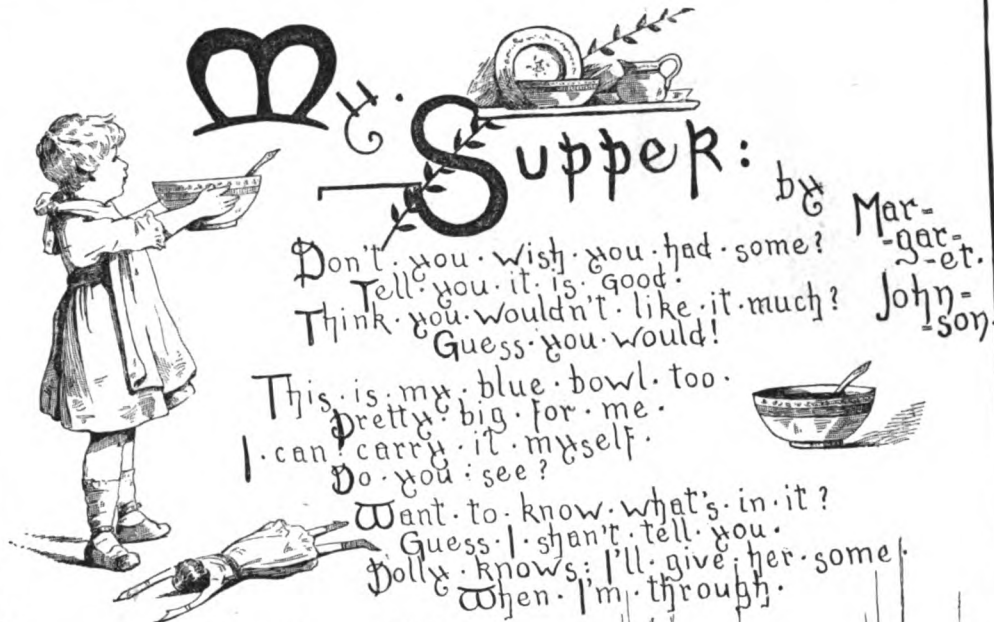 My · Supper :
by Mar-
-gar-
-et.
John-
-son.
Don't · you · wish · you · had · some ?
Tell · you · it · is · good ·
Think · you · wouldn't · like · it · much ?
Guess · you · would !
This · is · my · blue · bowl · too ·
Pretty · big · for · me ·
I · can · carry · it · myself ·
Do · you · see ?
Want · to · know · what's · in · it ?
Guess · I · shan't · tell · you ·
Dolly · knows ; I'll · give · her · some ,
When · I'm · through ·